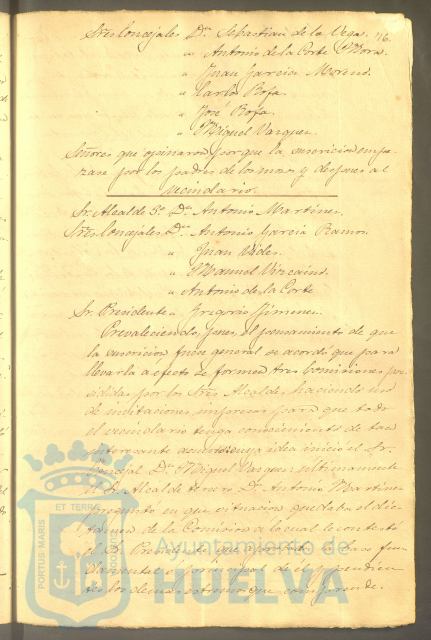 Sres Concejales Dn. Sebastian de la Vega. 76.
" Antonio de la Corte Mora.
" Juan Garcia Moreno.
" Carlos Rofa.
" José Rofa.
" Miguel Vazquez.
Señores que opinaron porque la suscricion empe-
zase por los padres de los mozos y despues al
vecindario.
Sr. Alcalde 3º Dn Antonio Martinez.
Sres Concejales Dn Antonio Garcia Ramos.
" Juan
" Manuel Vizcaino.
" Antonio de la Corte
Sr. Presidente " Gregorio Jimenez.
Prevaleciendo, pues, el pensamiento de que
la suscricion fuese general se acordó que para
llevarla a efecto se formen tres Comisiones pre-
sididas por los Sres. Alcaldes haciendo uso
de invitaciones impresas para que todo
el vecindario tenga conocimiento de tan
interesante acuerdo cuya idea inició el Sr.
Concejal Dn. Miguel Vazquez ultimamente
el Sr. Alcalde tercero Dn. Antonio Martinez
preguntó en que situacion quedaba el dic-
tamen de la Comision a lo cual le contestó
el Sr. Presidente que
principal de el
los demas que comprende.
PORTUS MARIS ET TERRAE CUSTODIA
Ayuntamiento de
HUELVA